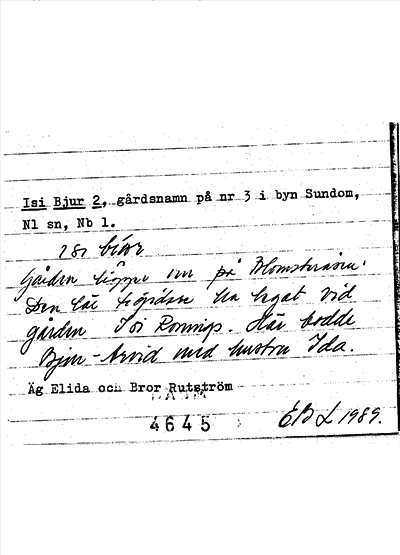 Isi Bjur 2, gårdsnamn på nr 3 i byn Sundom,
Nl sn, Nb l.
isi biur
Gården ligger på Blomsteråsen.
Den lär ha legat vid
gården Isi Ronnigs. Här bodde
Bjur-Arvid med hustru Ida.
Äg Elida och Bror Rutström
4645
EBL 1989.